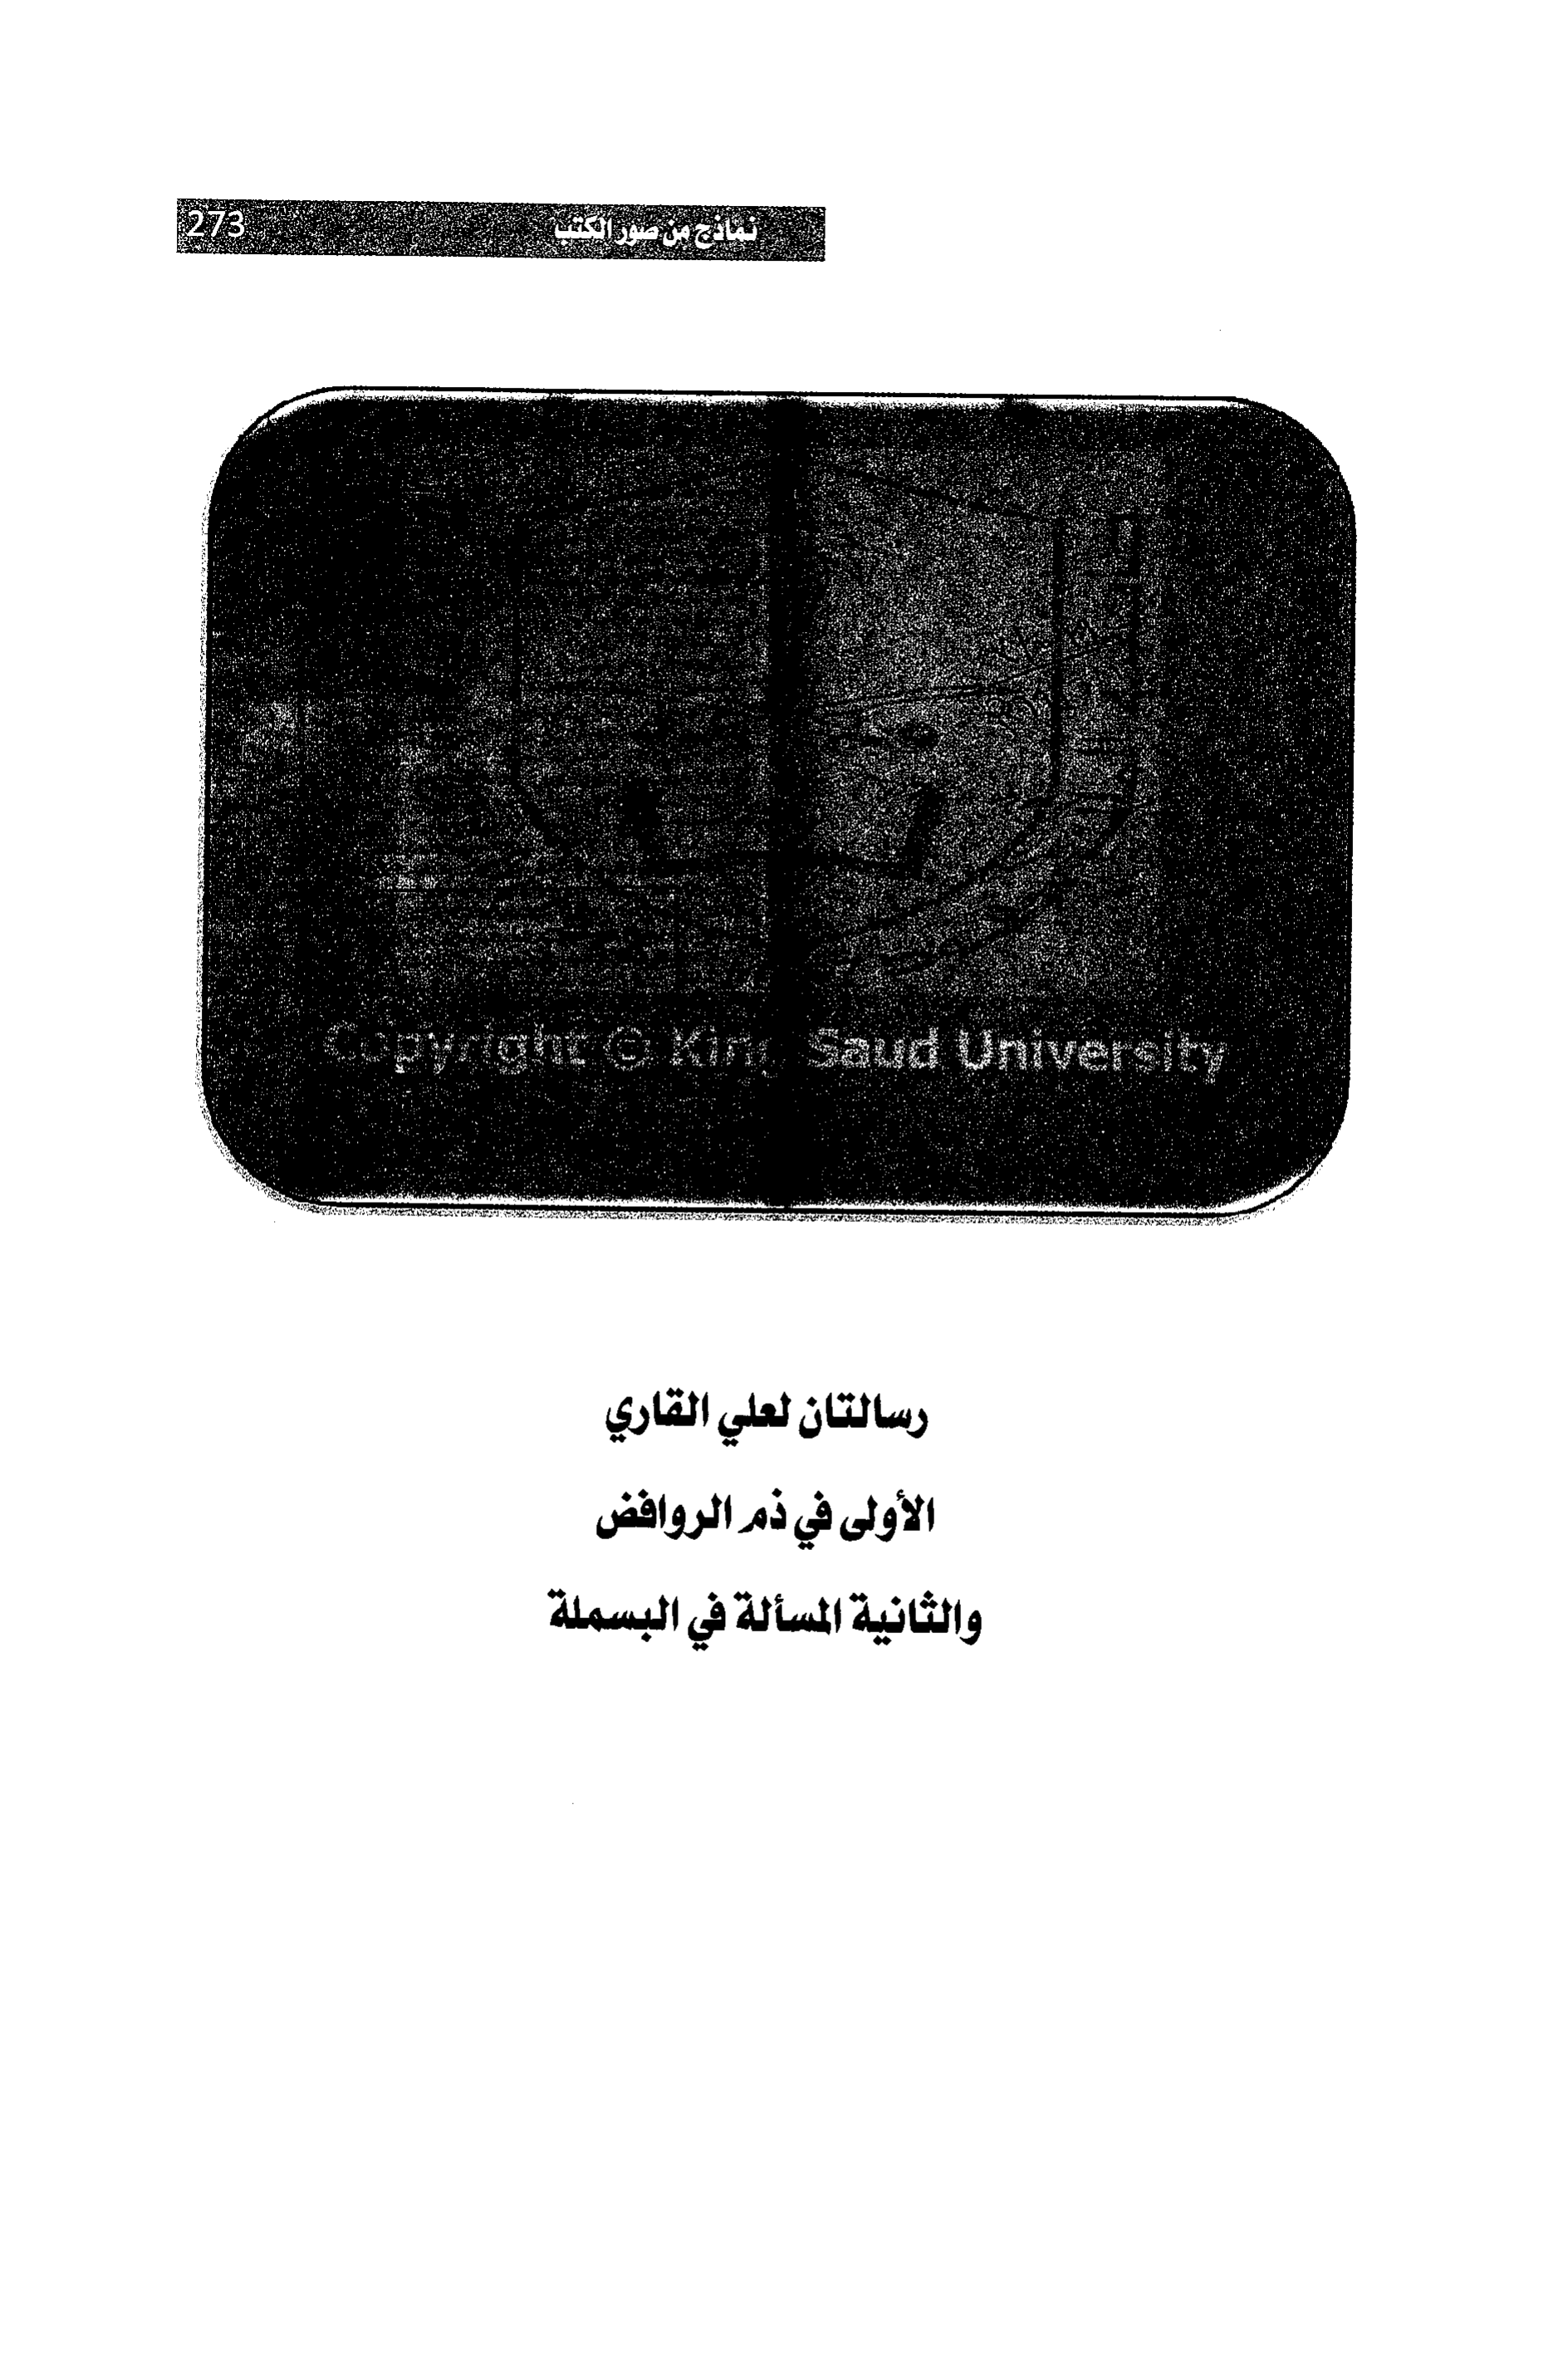 نماذج من صور الكتب 273
Copyright © King Saud University
رسالتان لعلي القاري
الأولى في ذم الروافض
والثانية المسألة في البسملة